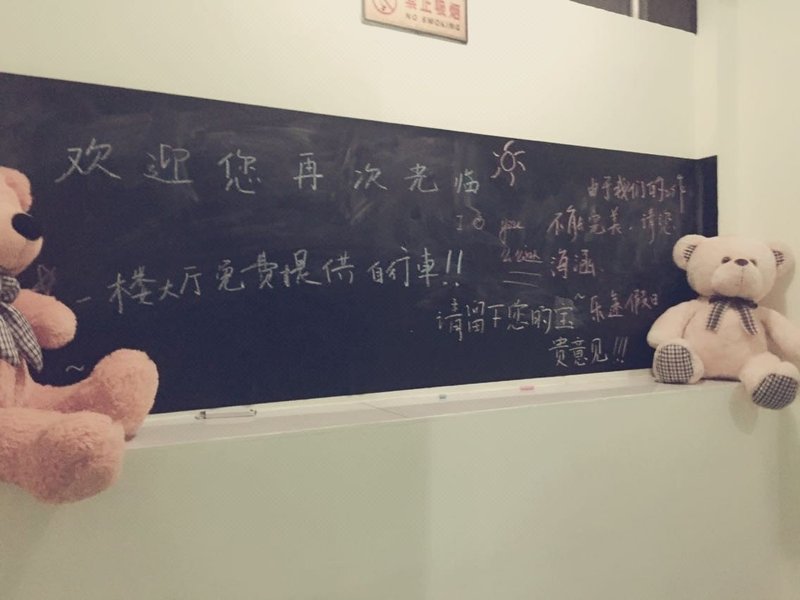 禁止吸烟
NO SMOKING
欢迎您再次光临
一楼大厅免费提供自行車!!
由于我们的工作
不能完美,请您
海涵.
~乐途假日
请留下您的宝
贵意见!!!